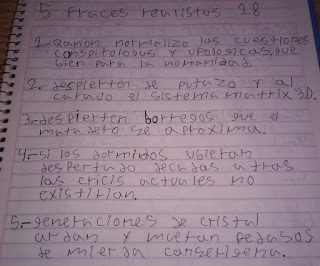 5 fraces realistas 18
1-Qanon normalizo las cuestiones
conspitologas y ufologicas, que
bien para la humanidad.
2-despierten se putazo y al
carado el sistema matrix 3D.
3-despierten borregos que el
matadero se aproxima.
4-si los dormidos ubieran
despertado decadas atras
las cricis actuales no
existirian.
5-generaciones de cristal
ardan y mueran pedasos
de mierda canserigena.